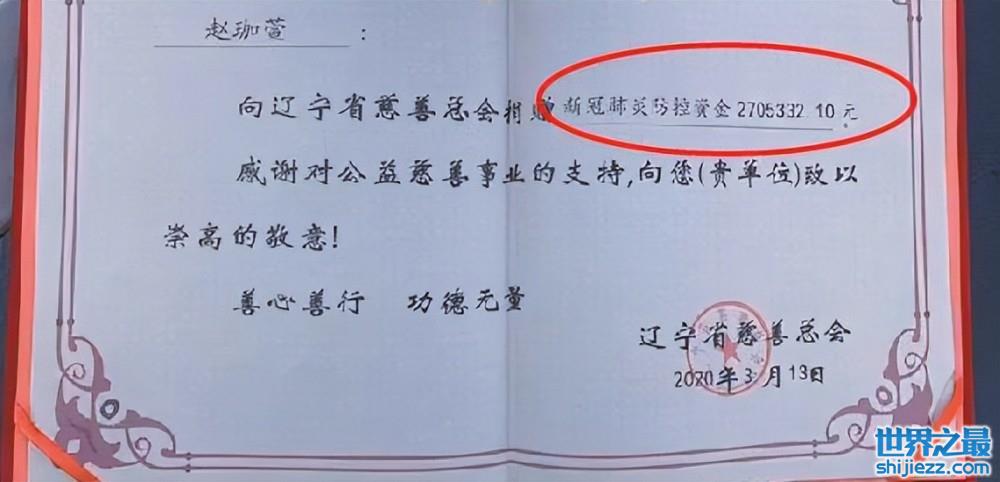 赵珈萱 :
向辽宁省慈善总会捐赠新冠肺炎防控资金2705332.10元。
感谢对公益慈善事业的支持,向您(贵单位)致以
崇高的敬意!
善心善行 功德无量
辽宁省慈善总会
2020年3月13日
世界之最
shijiezz.com